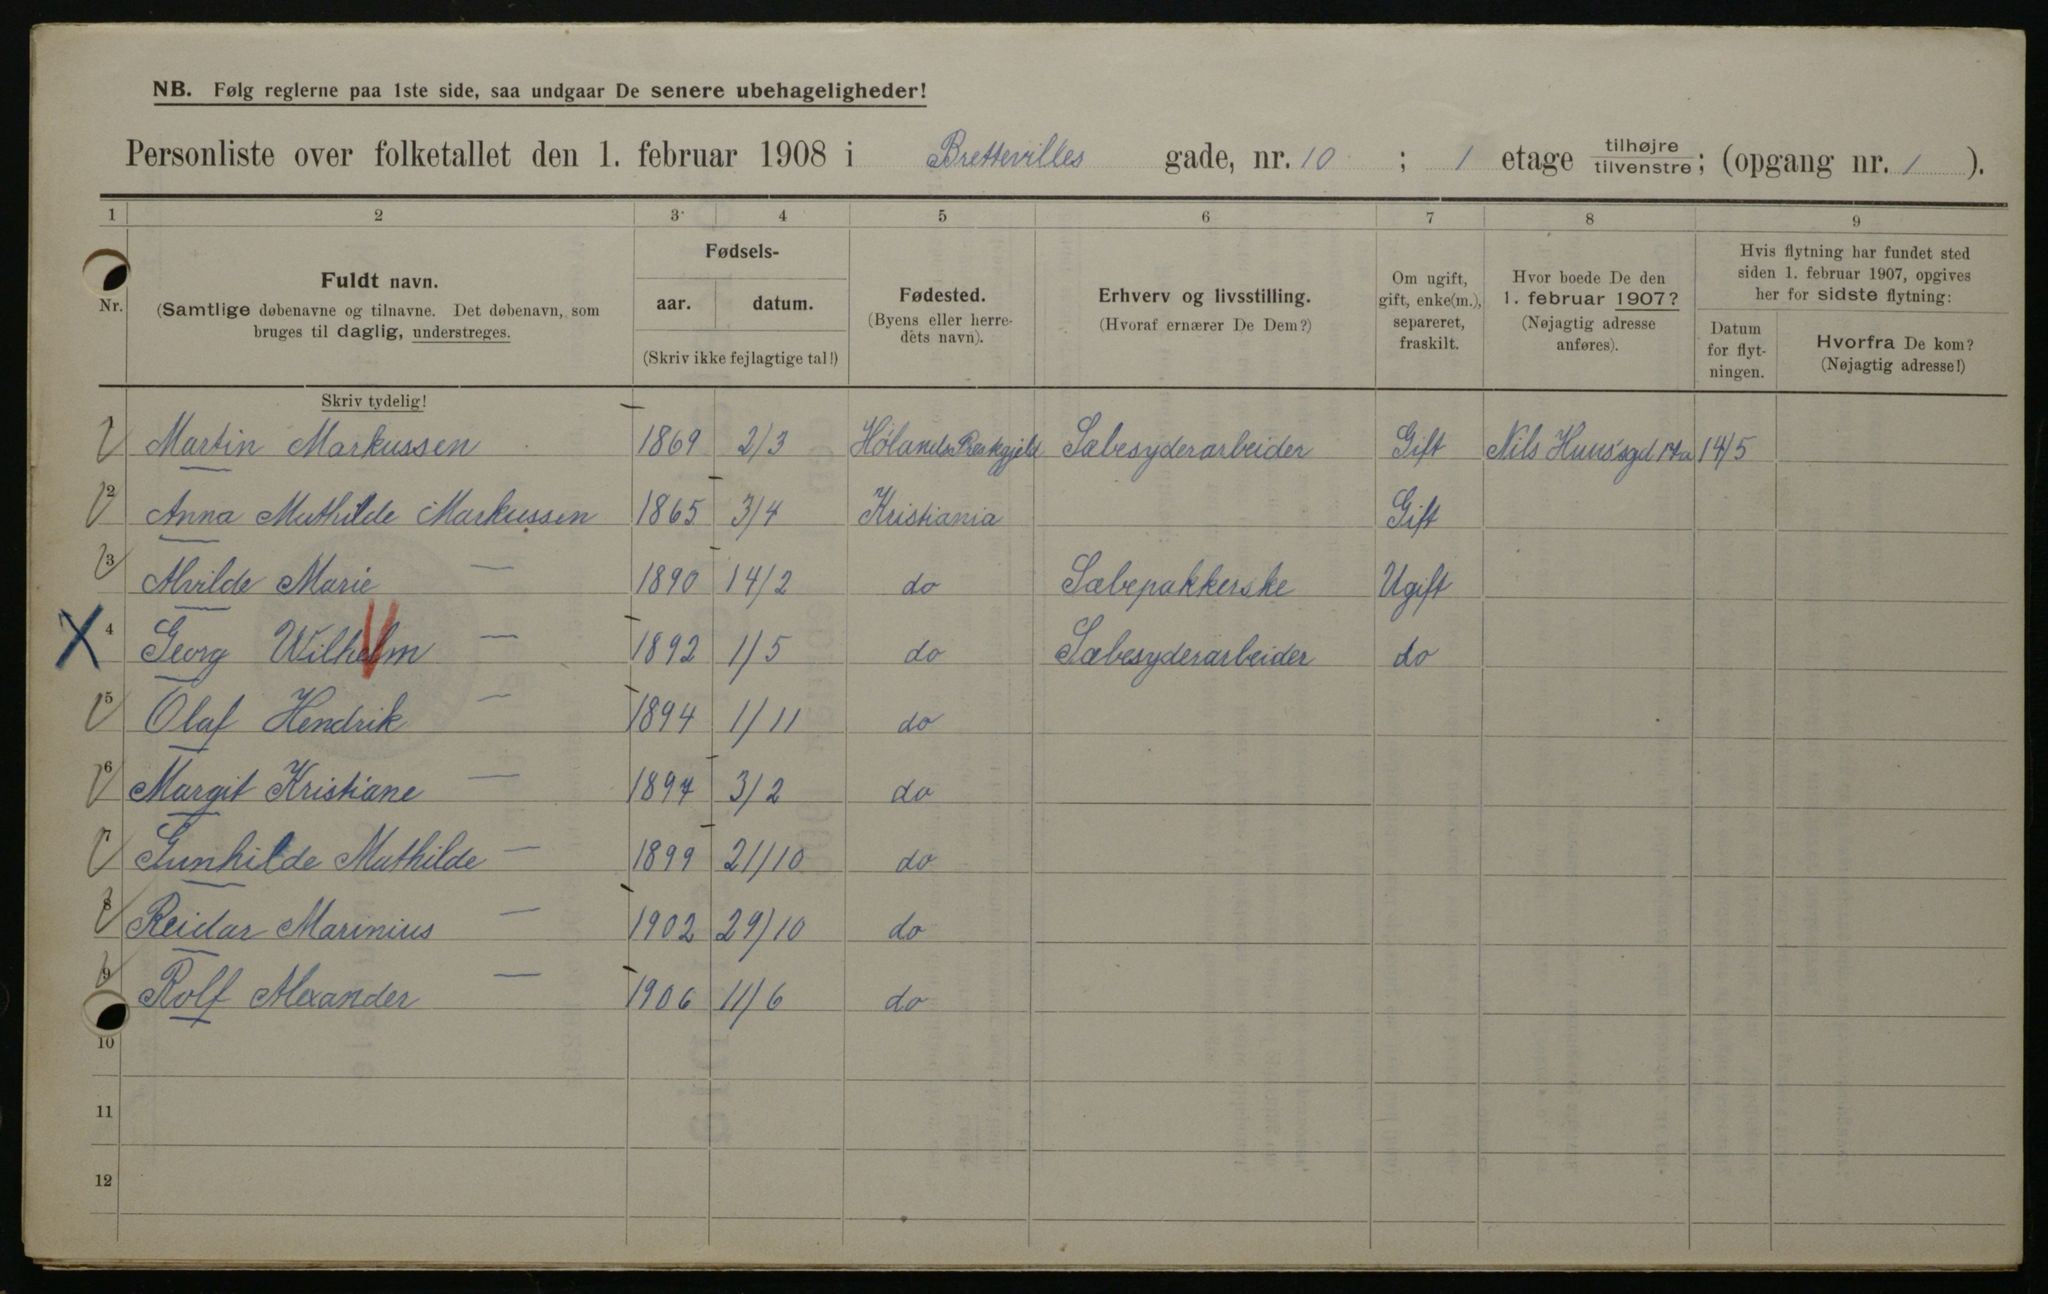 NB. Følg reglerne paa 1ste side, saa undgaar De senere ubehageligheder!
Personliste over folketallet den 1. februar 1908 i Brettevilles gade, nr. 10 ; 1 etage tilhøjre/tilvenstre; (opgang nr. 1 ).
1 2 3 4 5 6 7 8 9
Nr.
Fuldt navn.
(Samtlige døbenavne og tilnavne. Det døbenavn, som
bruges til daglig, understreges.
Skriv tydelig!
Fødsels-
aar. datum.
(Skriv ikke fejlagtige tal!)
Fødested.
(Byens eller herre-
dets navn).
Erhverv og livsstilling.
(Hvoraf ernærer De Dem?)
Om ugift,
gift, enke(m.),
separeret,
fraskilt.
Hvor boede De den
1. februar 1907?
(Nøjagtig adresse
anføres).
Hvis flytning har fundet sted
siden 1. februar 1907, opgives
her for sidste flytning:
Datum
for flyt-
ningen.
Hvorfra De kom?
(Nøjagtig adresse!)
1 Martin Markussen 1869 2/3 Hølands Præstegjeld Sæbesyderarbeider Gift Nils Huus'sgd 14/5
2 Anna Mathilde Markussen 1865 3/4 Kristiania Gift
3 Alvilde Marie — 1890 14/2 do Sæbepakkerske Ugift
X 4 Georg Wilhelm — 1892 1/5 do Sæbesyderarbeider do
5 Olaf Hendrik — 1894 1/11 do
6 Margit Kristiane — 1897 3/2 do
7 Gunhilde Mathilde — 1899 21/10 do
8 Reidar Marinius — 1902 29/10 do
9 Rolf Alexander — 1906 11/6 do
10
11
12